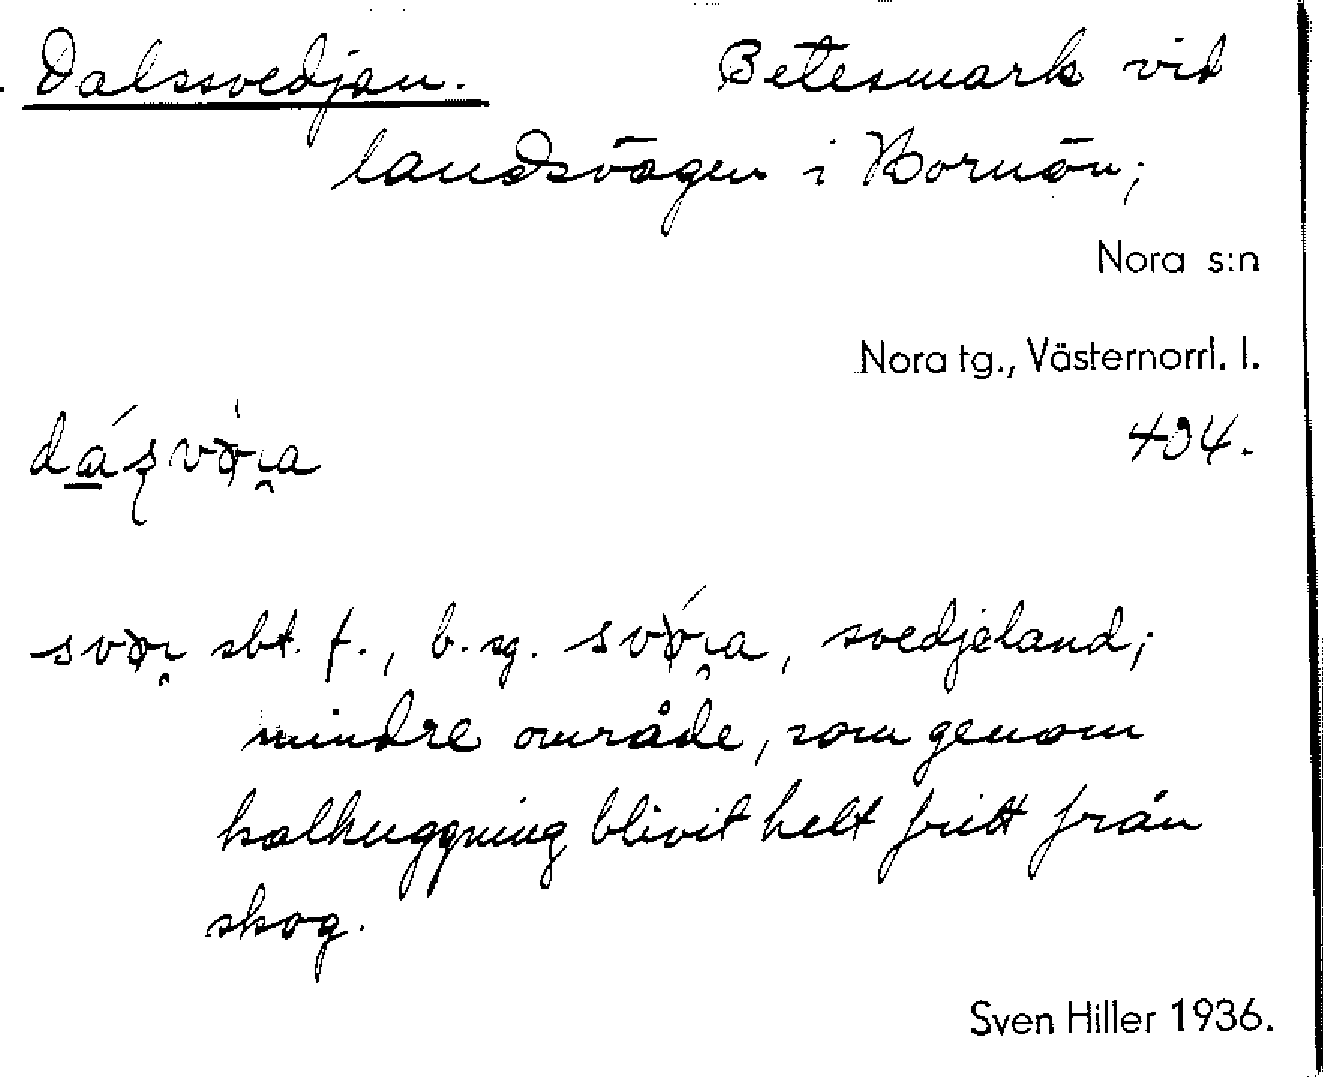 Dalssvedjan. Betesmark vid
landsvägen i Bornön;
Nora s:n
Nora tg., Västernorrl. l.
404.
sbt. f., b. sg. , svedjeland;
mindre område, som genom
kalhuggning blivit helt fritt från
skog.
Sven Hiller 1936.